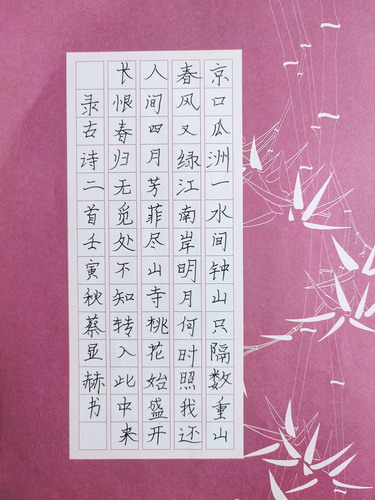 京口瓜洲一水间钟山只隔数重山
春风又绿江南岸明月何时照我还
人间四月芳菲尽山寺桃花始盛开
长恨春归无觅处不知转入此中来
录古诗二首壬寅秋蔡显赫书